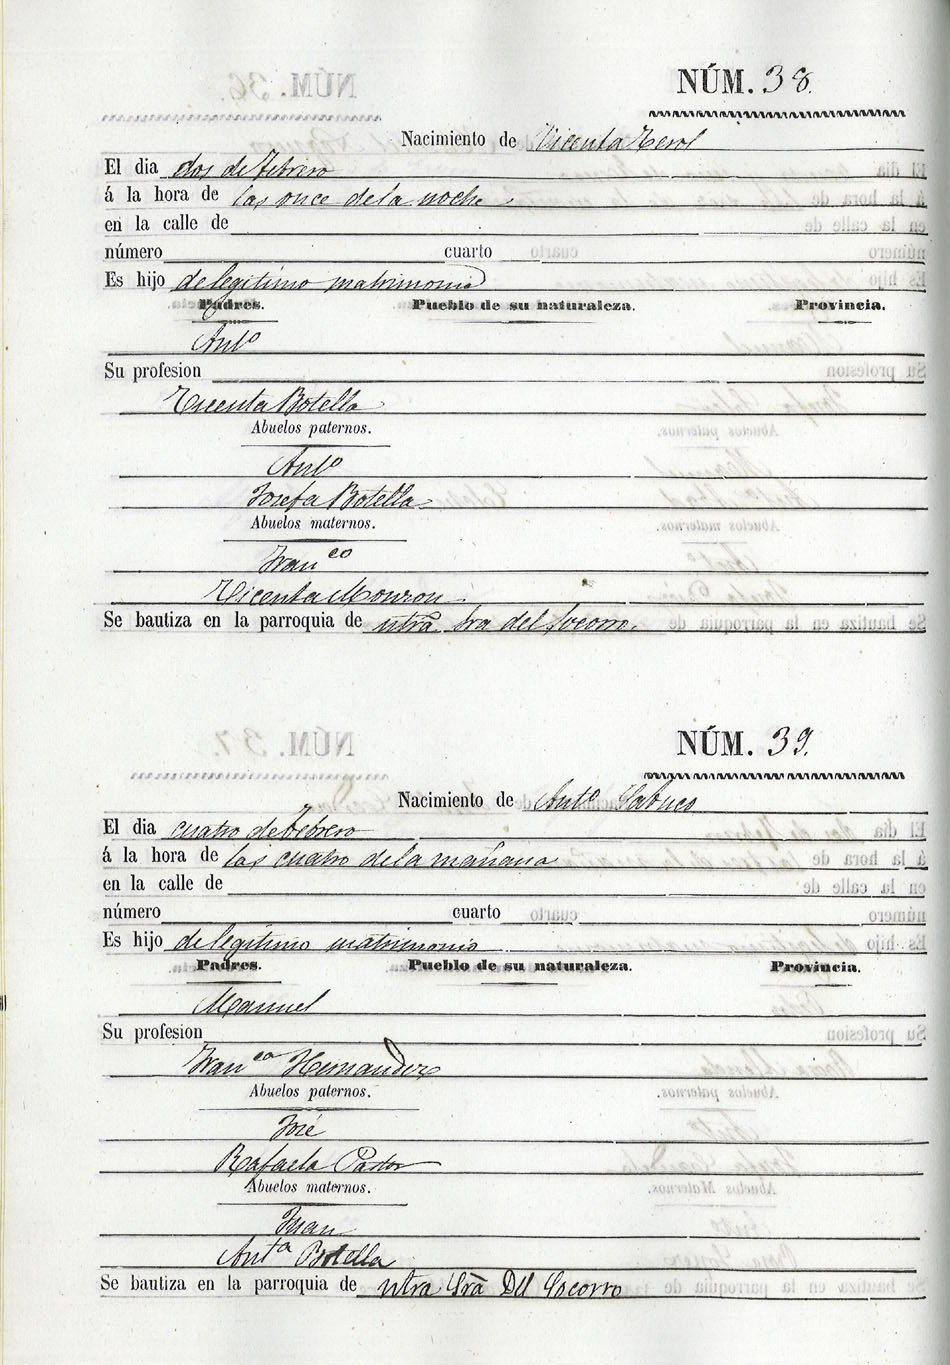 NÚM. 38.
Nacimiento de Vicenta Terol
El dia dos de Febrero
á la hora de las once de la noche
en la calle de
número cuarto
Es hijo de legitimo matrimonio
Padres. Pueblo de su naturaleza. Provincia.
Antº
Su profesion
Vicenta Botella
Abuelos paternos.
Antº
Josefa Botella
Abuelos maternos.
Franco
Vicenta Monzon
Se bautiza en la parroquia de ntra Sra del Socorro.
NÚM. 39.
Nacimiento de Antº Sabuco
El dia cuatro de Febrero
á la hora de las cuatro de la mañana
en la calle de
número cuarto
Es hijo de legitimo matrimonio
Padres. Pueblo de su naturaleza. Provincia.
Manuel
Su profesion
Franca Hernandez
Abuelos paternos.
José
Rafaela Pastor
Abuelos maternos.
Juan
Antª Botella
Se bautiza en la parroquia de ntra Sra Del Socorro